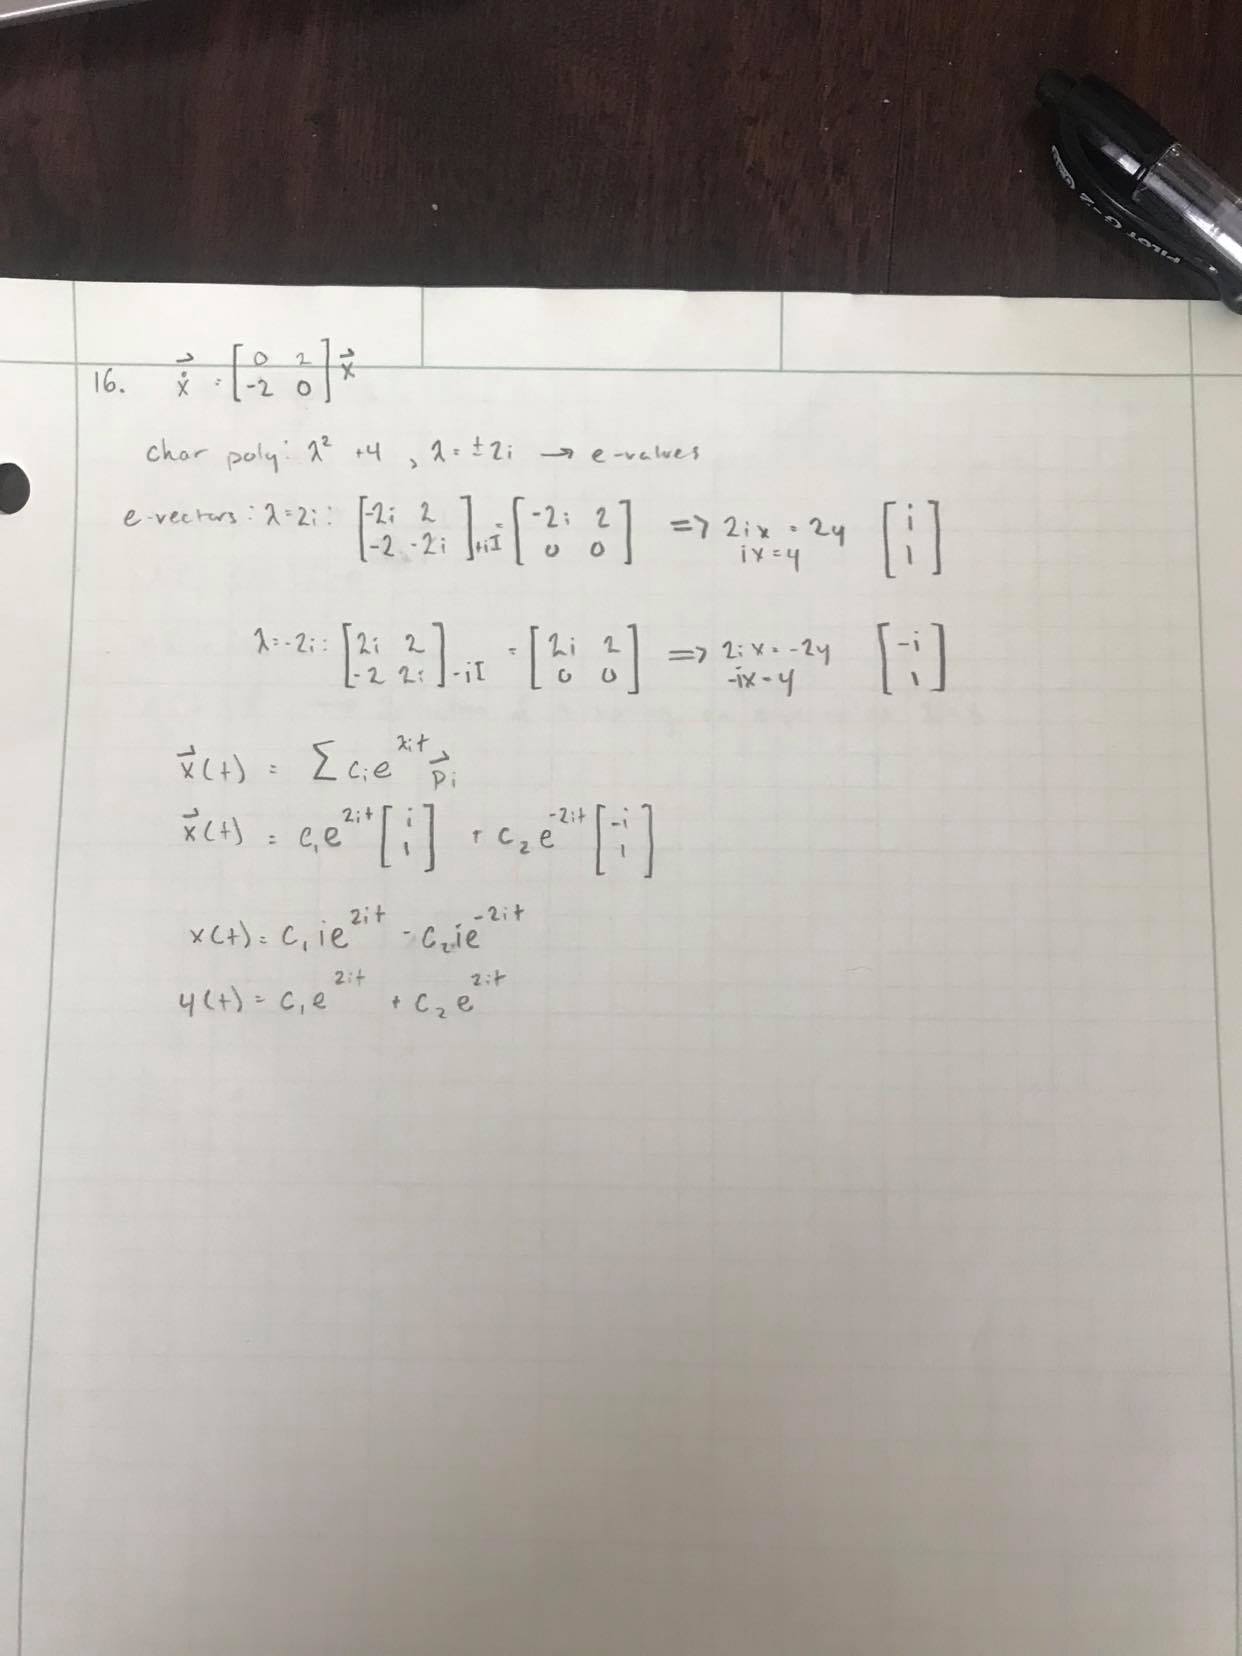 16. ẋ⃗ = [0 2; -2 0] x⃗
char poly: λ² +4 , λ = ±2i → e-values
e-vectors: λ=2i: [-2i 2; -2 -2i]+iI = [-2i 2; 0 0] => 2ix = 2y [i; 1]
ix = y
λ=-2i: [2i 2; -2 2i]-iI = [2i 2; 0 0] => 2ix = -2y [-i; 1]
-ix - y
x⃗(t) = Σ cᵢe^λit p⃗ᵢ
x⃗(t) = c₁e^2it [i; 1] + c₂e^-2it [-i; 1]
x(t) = c₁ie^2it - c₂ie^-2it
y(t) = c₁e^2it + c₂e^2it
PILOT G-2